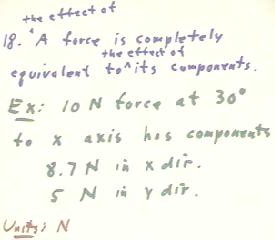 the effect of
18. ^A force is completely
the effect of
equivalent to^its components.
Ex: 10 N force at 30°
to x axis has components
8.7 N in x dir.
5 N in y dir.
Units: N